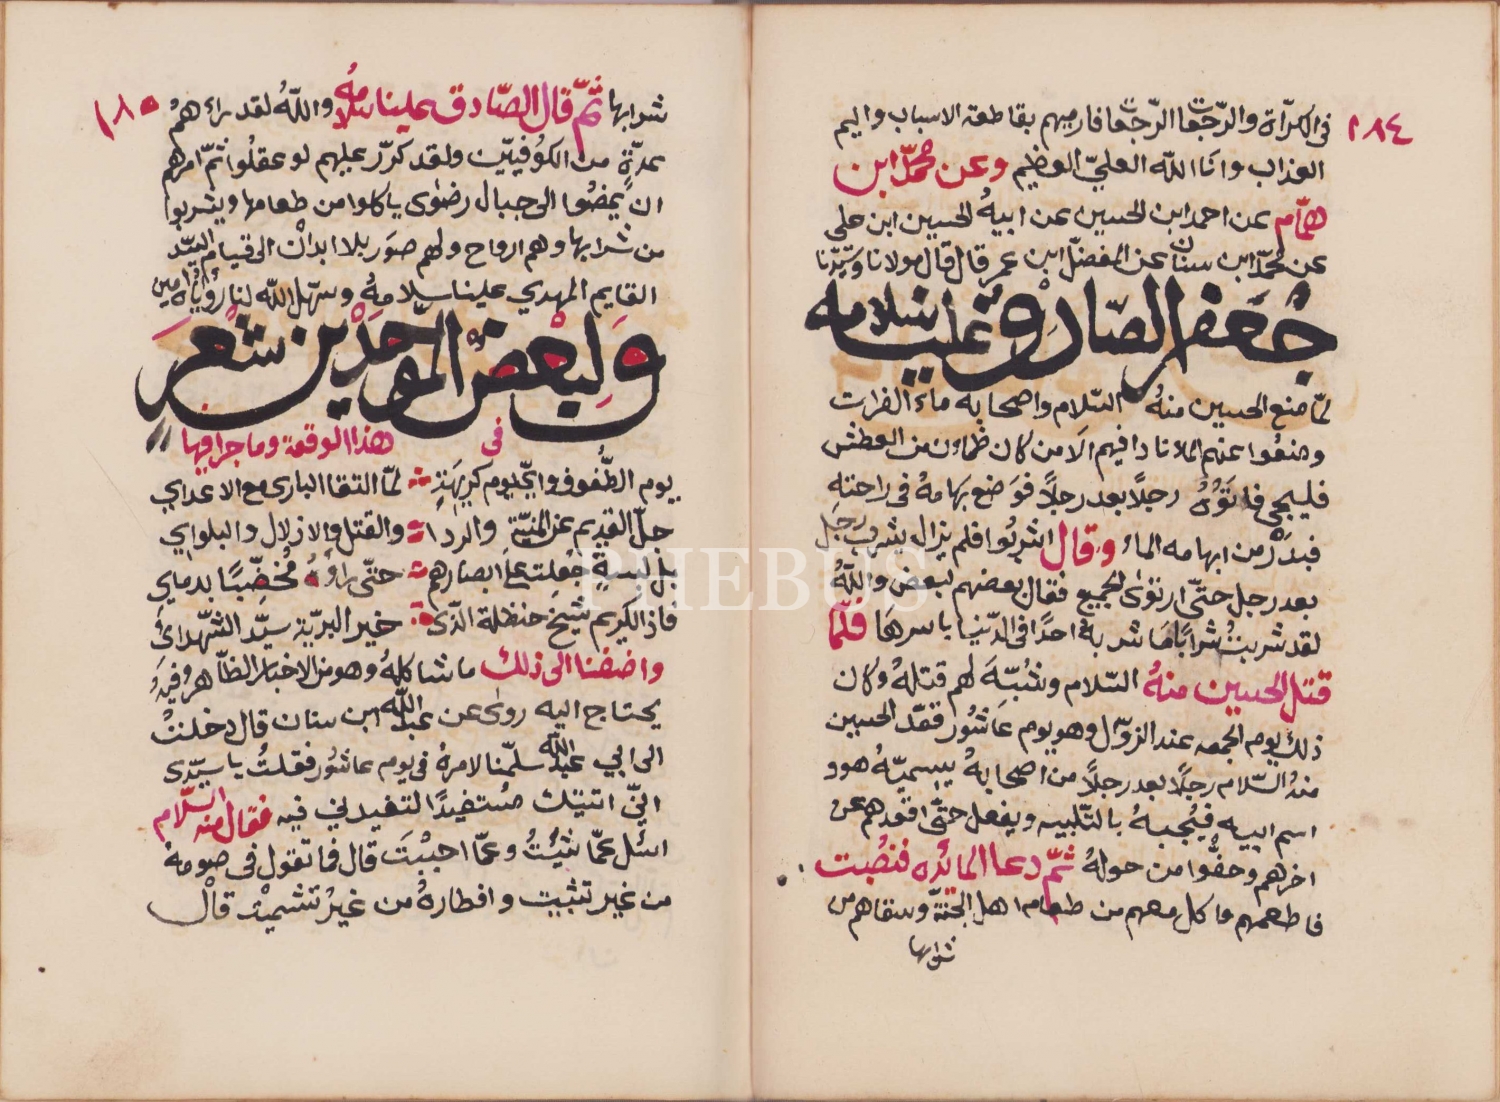 ١٨٤
في الكرّاة والرّجعات الرّجعا فارميهم بقاطعة الاسباب واليم
العذاب وانا الله العليّ العظيم وعن محمّد ابن
همّام عن احمد ابن الحسين عن ابيهُ الحسين ابن علي
عن محمّد ابن سنان عن المفضّل ابن عمر قال قال مولانا وسيّدنا
جُعَفر الصّادق علينا سلامه
لمّا منع الحسين منهُ السّلام واصحابه ماء الفرات
ومنعُوا عنهم الماء نادا فيهم الا من كان ظمان من العطش
فليجي فاتَوُهُ رجلاً بعد رجلاً فوَضع بهامهُ في راحته
فبدر من ابهامه الماء وقال اشربُوا فلم يزال يشرب رجل
بعد رجل حتّى ارتوى الجميع فقال بعضهم لبعض واللهُ
لقد شربتُ شرابًا ما شربهُ احدًا في الدّنيا باسرهَا فلّما
قتل الحسين منهُ السّلام وشُبّهَ لهم قتلهُ وكان
ذلك يوم الجمعه عند الزوّال وهو يوم عاشُور فقدّ الحسين
منهُ السّلام رجلًا بعد رجلاً من اصحابهُ يسميّهُ هوو
اسم ابيه فيُجبهُ بالتّلبيه ويفعل حتّى فقدهم عن
اخرهم وحفُّوا من حولهُ ثمّ دعا المائده فنصُبت
فاطعمهم واكل معهم من طعام اهل الجنّة وسقاهم من
شرابها
١٨٥
شرابها ثمّ قال الصّادق علينا سلامهُ واللهُ لقد راءهمُ
عدةٍ من الكُوفيّين ولقد كرّر عليهم لو عقلُوا ثمّ امرهم
ان يمضُوا الى جبال رضوى ياكلوا من طعامها ويشربوا
من شرابها وهم ارواح ولهم صوَر بلا ابدان الى قيام السيّد
القايم المهدي علينا سلامهُ وسهّل الله لنا رؤياهُ امين
ولبعض الموحدين شعر
في هذا الوقعة وما جرا فيها
يوم الطّفُوف وايّ يوم كريهةٍ لمّا التقا الباري مع الاعداي
جلّ القديم عن المنيّة والردا والقتل والازلال والبلواي
بل لبسةٍ جُعلت على ابصارهم حتّى راوهُ مُخضِّبًا بدماي
فاذا الكريم شيخ حنظلة الّذى خير البريّة سيّد الشهّدائ
واضفنا الى ذلك ما شاكلهُ وهو من الاخبار الظّاهر وفيهُ
يحتاج اليه روى عن عبد الله ابن سنان قال دخلتُ
الى ابي عبد الله سلمّنا لامرهُ في يوم عاشُور فقلتُ يا سيّدي
انيّ اتيتك مُستفيدًا لتفيدني فيه فقال منه السّلام
اسُل عمّا شيُتُ وعمّا اجبُبَت قال فما تقول في صومهُ
من غير تثبيت وافطارهُ من غيرُ تشميت قال
PHEBUS